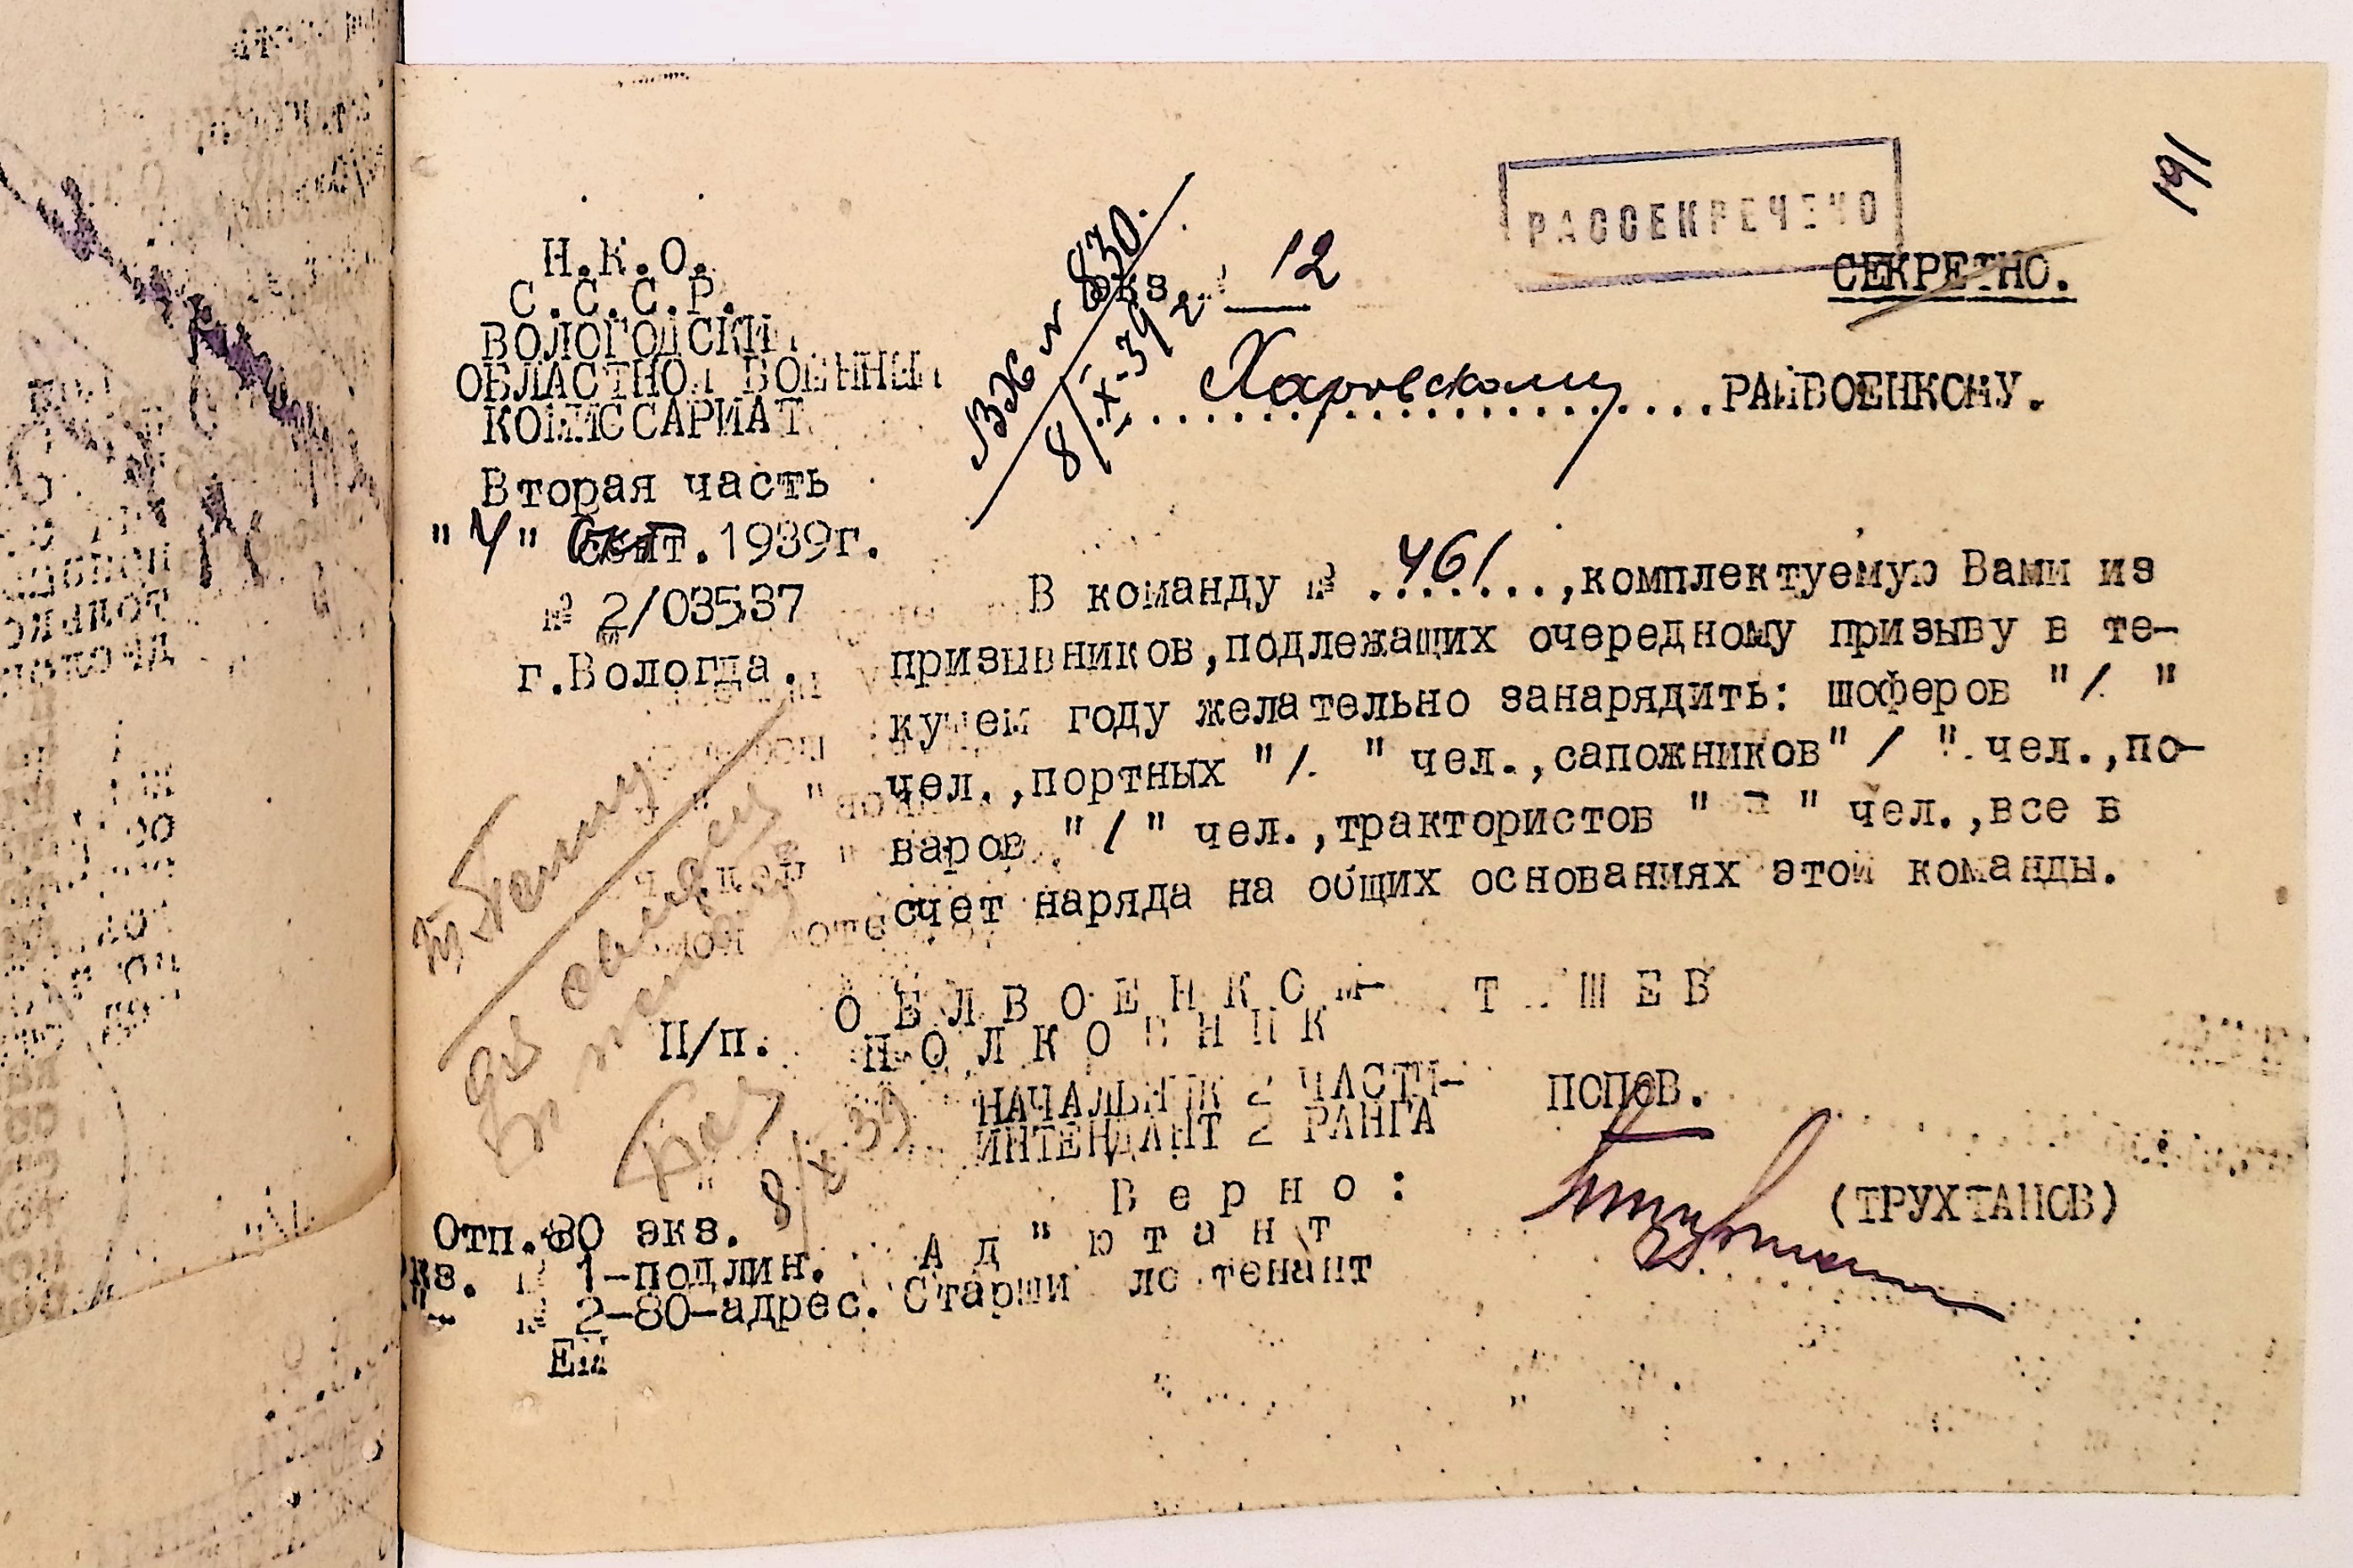 191
РАССЕКРЕЧЕНО
СЕКРЕТНО.
Н.К.О.
С.С.С.Р.
ВОЛОГОДСКИЙ
ОБЛАСТНОЙ ВОЕННЫЙ
КОМИССАРИАТ
Вторая часть
"4" Окт.1939г.
№ 2/03537
г.Вологда.
Вх № 830.
8/X-39 г.
экз. № 12
Харовскому РАЙВОЕНКОМУ.
В команду № 461, комплектуемую Вами из
призывников,подлежащих очередному призыву в те-
кущем году желательно занарядить: шоферов "1. "
чел.,портных "1. " чел.,сапожников" 1 " чел.,по-
варов "1" чел.,трактористов " " чел.,все в
счет наряда на общих основаниях этой команды.
П/п. ОБЛВОЕНКОМ-
ПОЛКОВНИК
НАЧАЛЬНИК 2 ЧАСТИ- ПОПОВ.
ИНТЕНДАНТ 2 РАНГА
Верно:
Ад"ютант
Старший лейтенант (ТРУХТАНОВ)
8/X-39
Отп.80 экз.
экз. № 1-подлин.
-"- № 2-80-адрес.
ЕМ